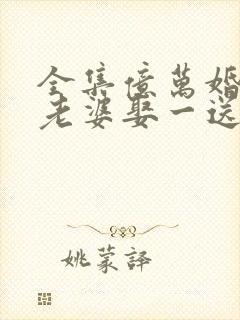 全集億萬婚
老婆娶一送
姚蒙譯